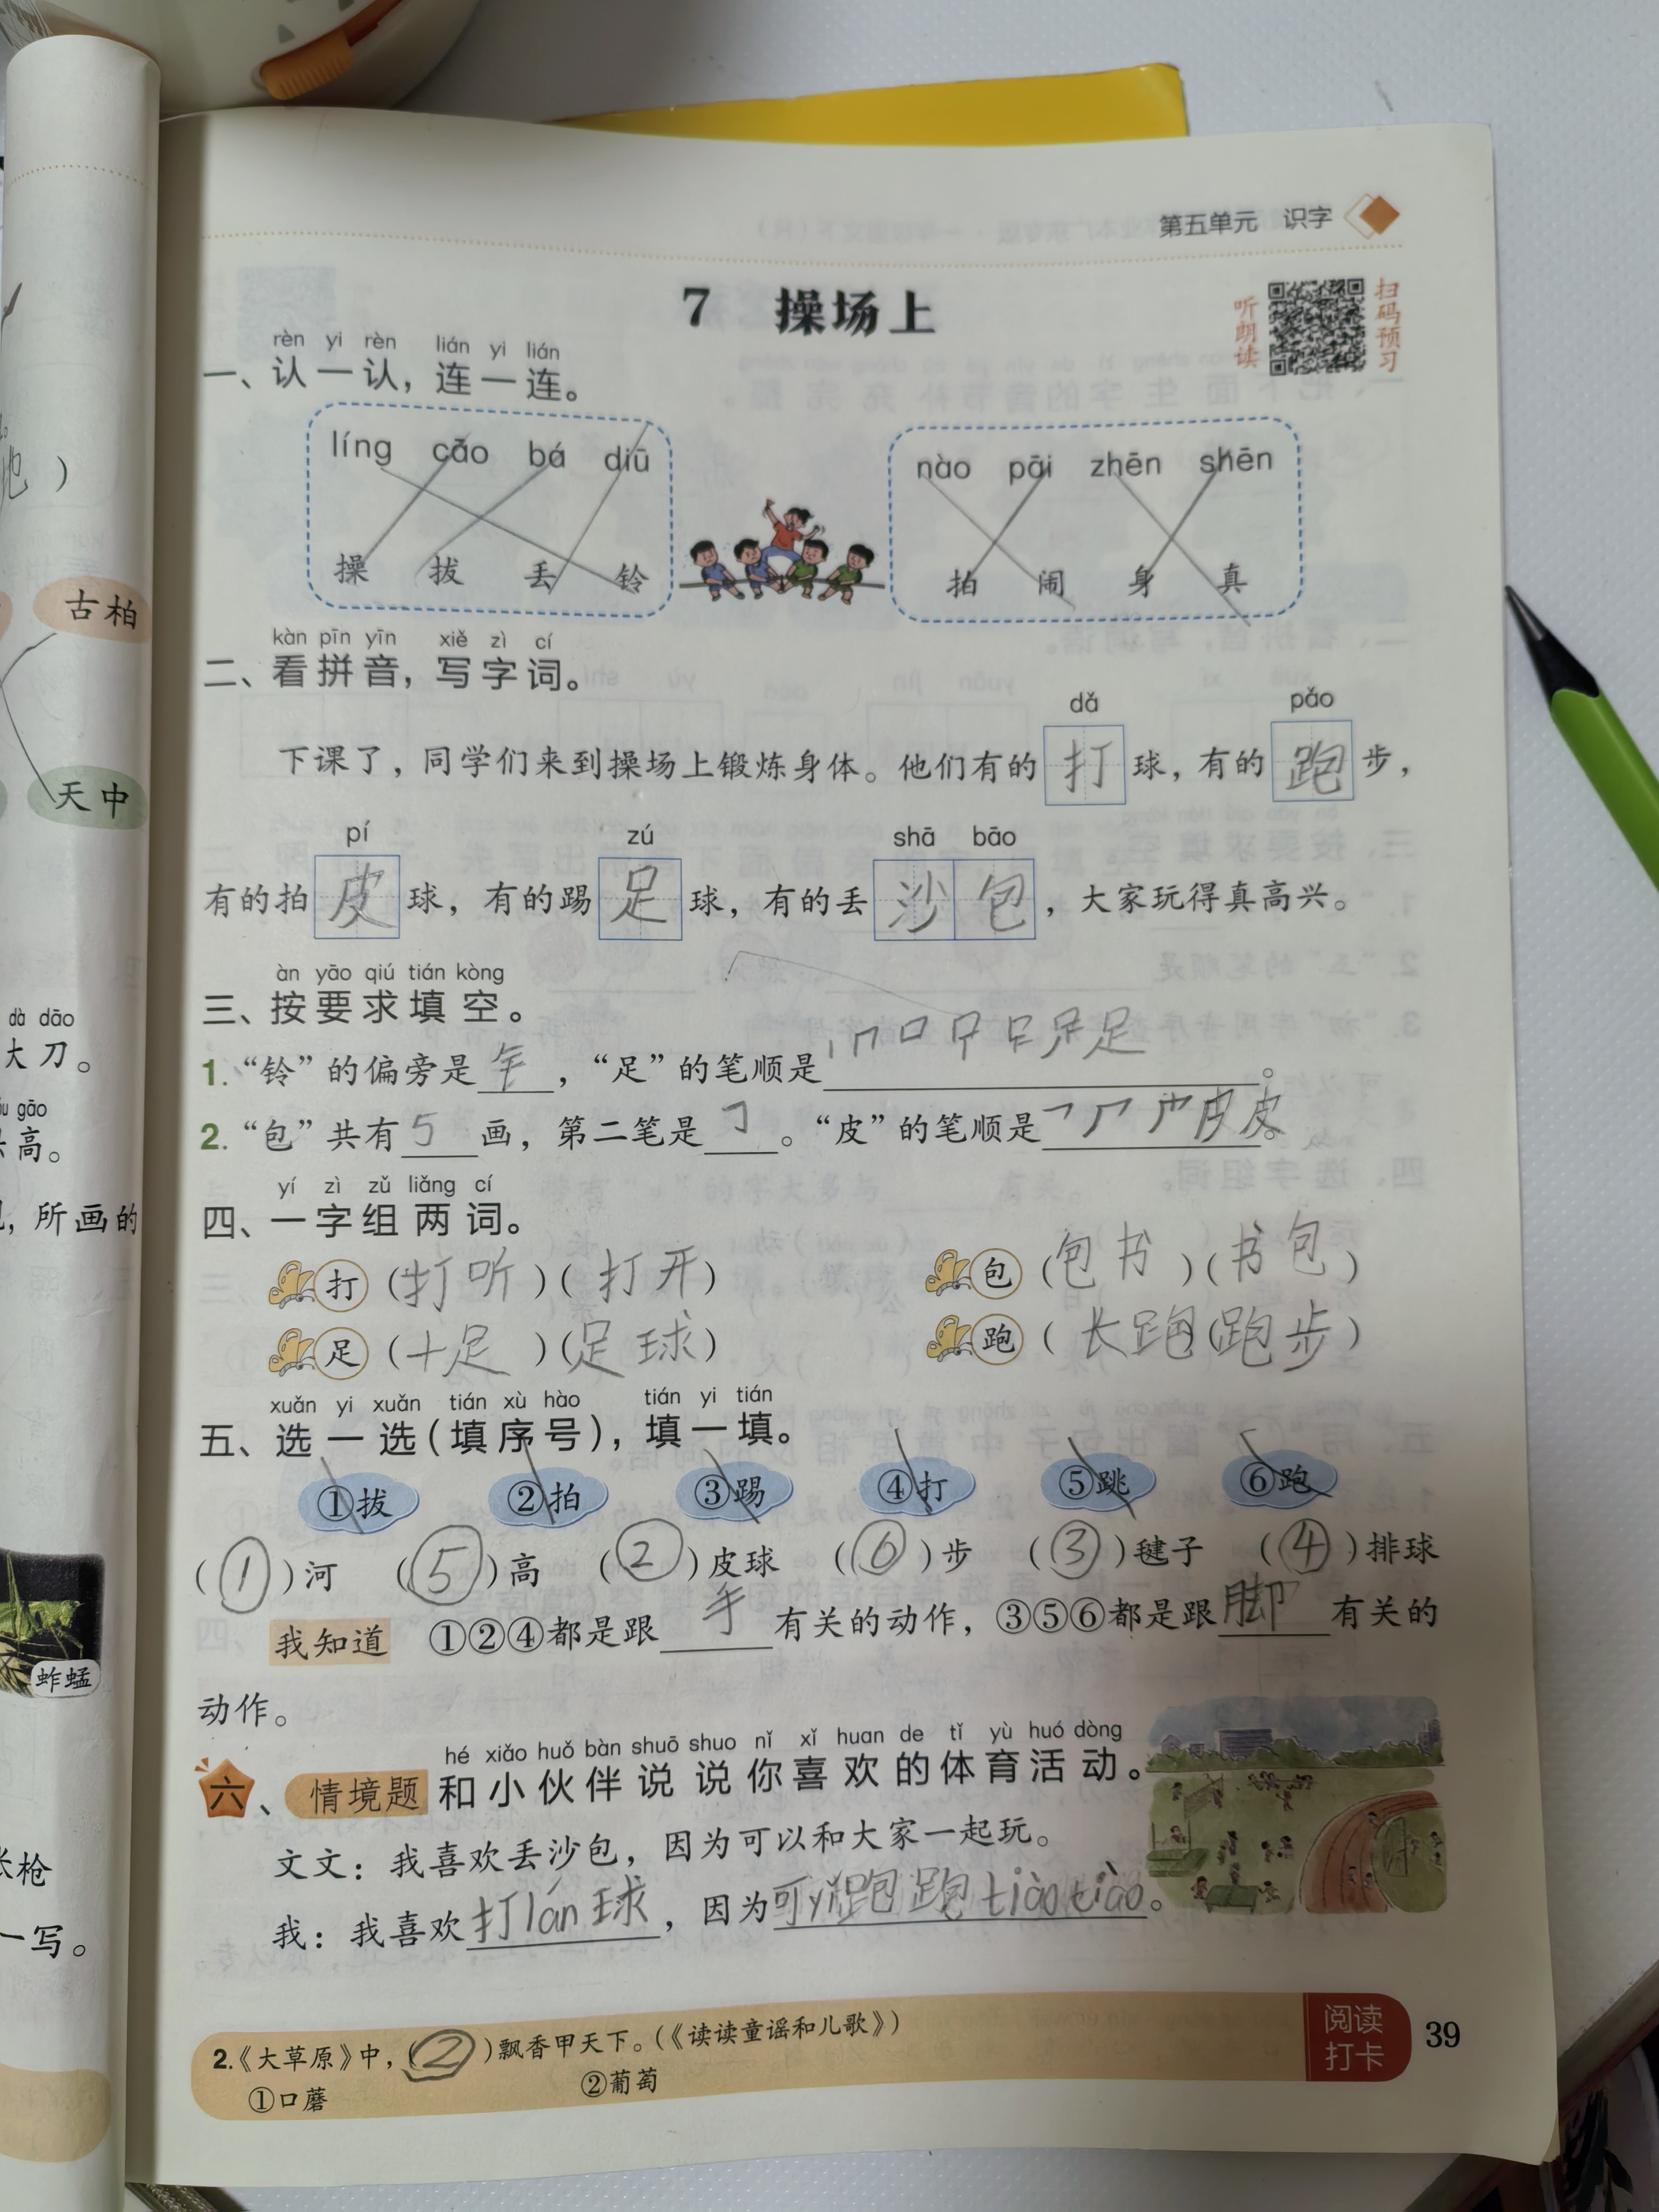 第五单元 识字
7 操场上
听朗读
扫码预习
rèn yi rèn lián yi lián
一、认一认，连一连。
líng cāo bá diū
nào pāi zhēn shēn
操 拔 丢 铃
拍 闹 身 真
kàn pīn yīn xiě zì cí
二、看拼音，写字词。
dǎ pǎo
下课了，同学们来到操场上锻炼身体。他们有的打球，有的跑步，
pí zú shā bāo
有的拍皮球，有的踢足球，有的丢沙包，大家玩得真高兴。
àn yāo qiú tián kòng
三、按要求填空。
1.“铃”的偏旁是钅，“足”的笔顺是丨 𠃍 口 足。
2.“包”共有5画，第二笔是㇆。“皮”的笔顺是㇇ 厂 皮。
yí zì zǔ liǎng cí
四、一字组两词。
打（打听）（打开） 包（包书）（书包）
足（十足）（足球） 跑（长跑）（跑步）
xuǎn yi xuǎn tián xù hào tián yi tián
五、选一选（填序号），填一填。
①拔 ②拍 ③踢 ④打 ⑤跳 ⑥跑
（①）河 （⑤）高 （②）皮球 （⑥）步 （③）毽子 （④）排球
我知道 ①②④都是跟手有关的动作，③⑤⑥都是跟脚有关的
动作。
hé xiǎo huǒ bàn shuō shuo nǐ xǐ huan de tǐ yù huó dòng
六、情境题 和小伙伴说说你喜欢的体育活动。
文文：我喜欢丢沙包，因为可以和大家一起玩。
我：我喜欢打lán球，因为可yǐ跑跑tiàotiào。
2.《大草原》中，（②）飘香甲天下。（《读读童谣和儿歌》）
①口蘑 ②葡萄
阅读打卡
39
古柏
天中
dà dāo
大刀。
gāo
高。
所画的
蚱蜢
枪
一写。